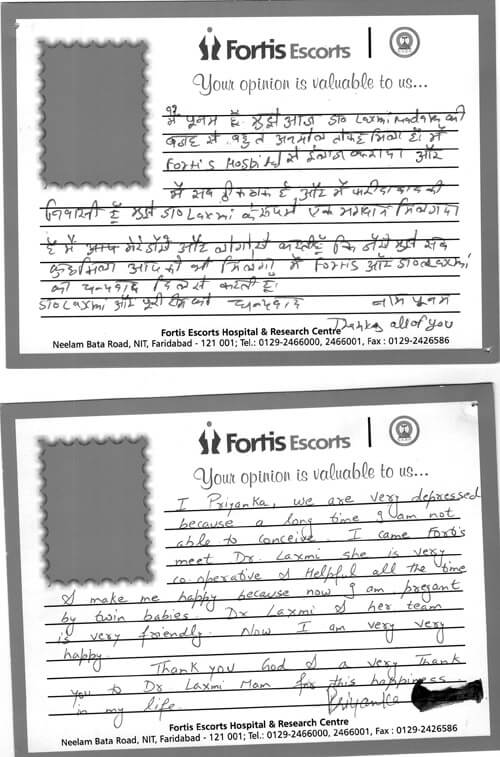 Fortis Escorts
Your opinion is valuable to us...
मैं पूनम हूँ मुझे आज डा० Laxmi की
वजह से बहुत अनमोल तोहफा मिला है। मैं
Fortis Hospital से ईलाज करवाया और
मैं सब ठीक ठाक है, और मैं फरीदाबाद की
निवासी हूँ मुझे डा० Laxmi के रूप में एक भगवान मिल गया
है मैं आप और लोगों से कहती हूँ कि मुझे सब
कुछ मिला आप को भी मिलेगा मैं Fortis और डा० Laxmi
को धन्यवाद दिल से करती हूँ।
डा० Laxmi और पूरी टीम को धन्यवाद नाम पूनम
Thanks all of you
Fortis Escorts Hospital & Research Centre
Neelam Bata Road, NIT, Faridabad - 121 001; Tel.: 0129-2466000, 2466001, Fax : 0129-2426586
Fortis Escorts
Your opinion is valuable to us...
I Priyanka, we are very depressed
because a long time I am not
able to conceive. I came Fortis
meet Dr. Laxmi she is very
co-operative & Helpful all the time
& make me happy because now I am pregant
by twin babies. Dr Laxmi & her team
is very friendly. Now I am very very
happy.
Thank you God & a very Thank
you to Dr Laxmi Mam for this happiness
in my life. Priyanka
Fortis Escorts Hospital & Research Centre
Neelam Bata Road, NIT, Faridabad - 121 001; Tel.: 0129-2466000, 2466001, Fax : 0129-2426586